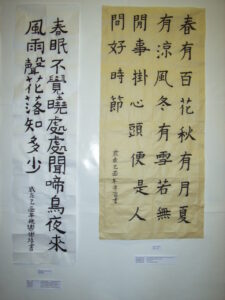 春有百花秋有月夏
有涼風冬有雪若無
閒事掛心頭便是人
間好時節
春眠不覺曉處處聞啼鳥夜來
風雨聲花落知多少